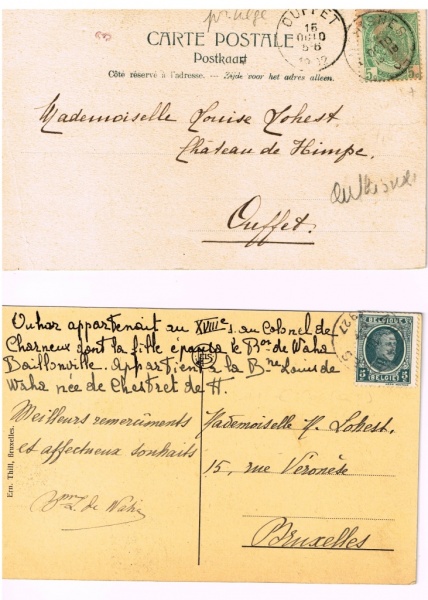 OUFFET
15
OCTO
CARTE POSTALE
Postkaart
Côté réservé à l'adresse. — Zijde voor het adres alleen.
Mademoiselle Louise Lohest
Château de Himpe.
Ouffet.
Ouhar appartenait au XVIIIe s. au Colonel de
Charneux dont la fille épousa le Bon de Waha
Baillonville. Appartient à la Bne Louis de
Waha née de Chestret de H.
BELGIQUE
5
BELGIË
Meilleurs remerciments
et affectueux souhaits
Bnne L. de Waha
Mademoiselle M. Lohest.
15, rue Véronèse
Bruxelles
Ern. Thill, Bruxelles.